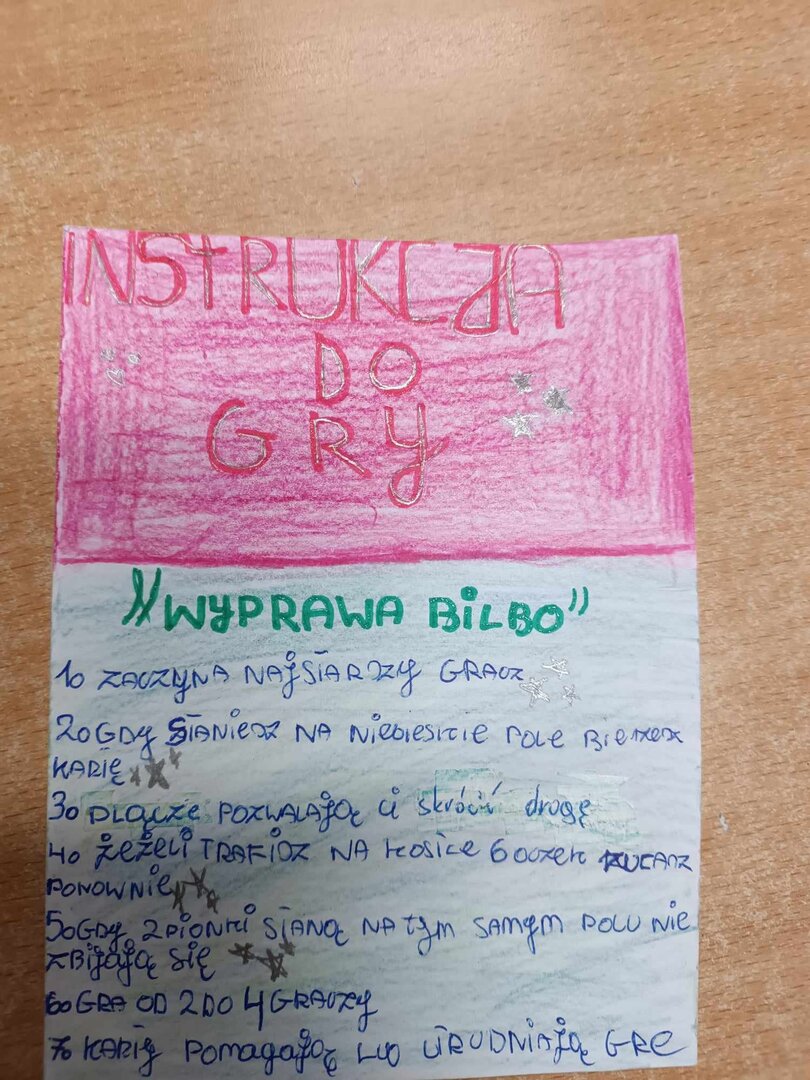 INSTRUKCJA
DO
GRY
"WYPRAWA BiLBO"
1. ZACZYNA NAJSTARSZY GRACZ
2. GDY STANIESZ NA NIEBIESKIE POLE BIERZESZ
KARTĘ
3. DŁĄCZE POZWALAJĄ Ci skrócić drogę
4. JEŻELI TRAFISZ NA KOSTCE 6 OCZEK RZUCASZ
PONOWNIE
5. GDY 2 PIONKI STANĄ NA TYM SAMYM POLU NIE
ZBIJAJĄ SIĘ
6. GRA OD 2 DO 4 GRACZY
7. KARTY POMAGAJĄ LUB UTRUDNIAJĄ GRĘ